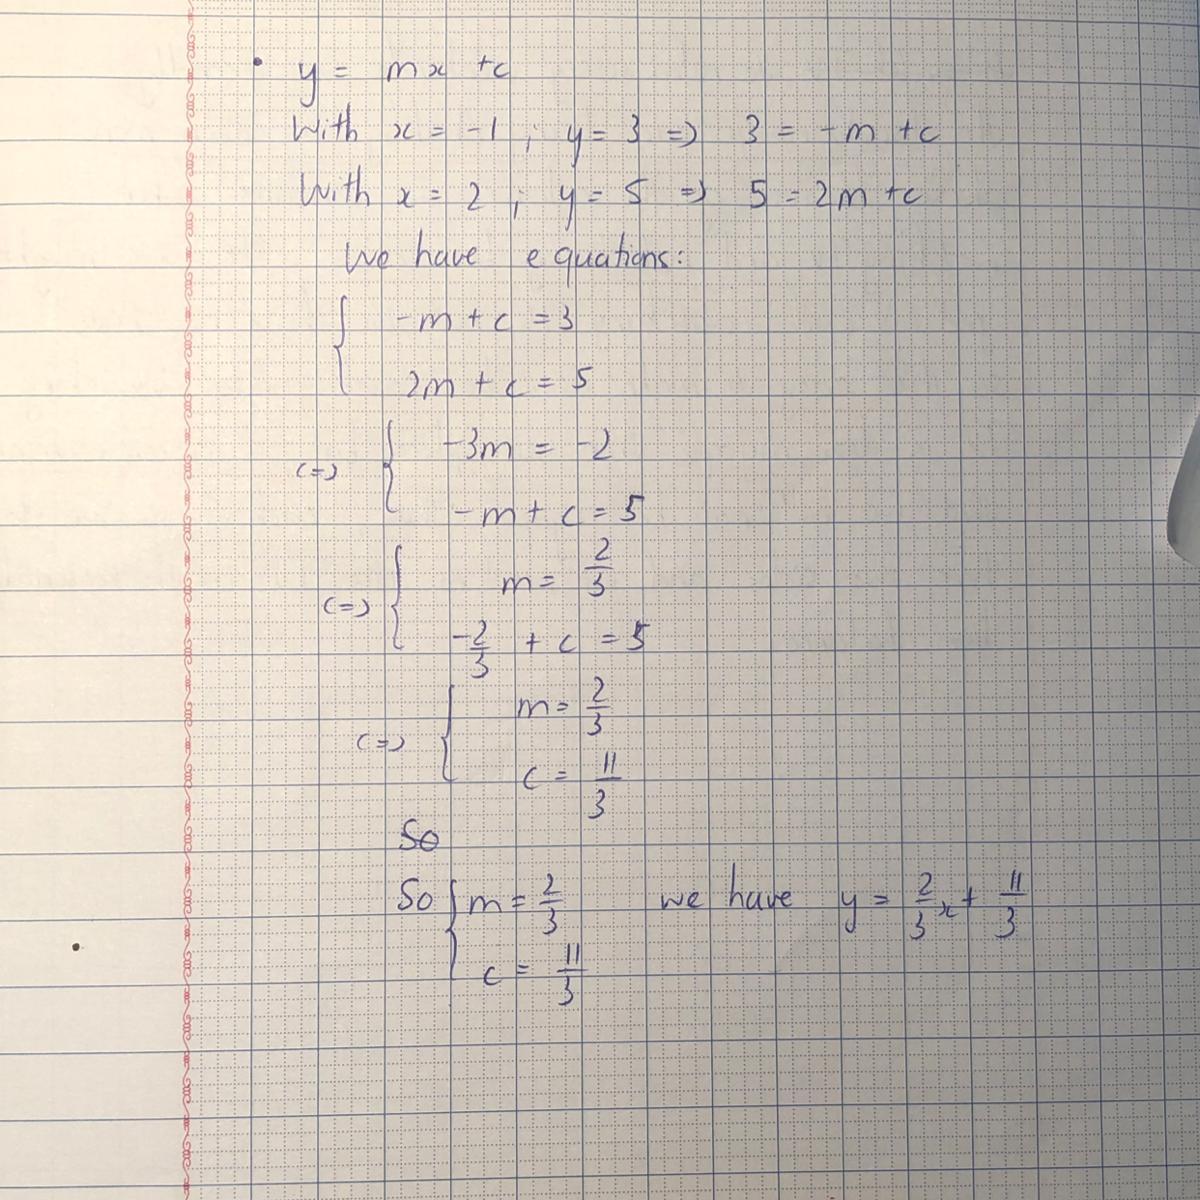 • y = mx + c
With x = -1 ; y = 3 => 3 = -m + c
With x = 2 ; y = 5 => 5 = 2m + c
We have equations:
{ -m + c = 3
2m + c = 5
(=) { -3m = -2
-m + c = 5
(=) { m = 2/3
-2/3 + c = 5
(=) { m = 2/3
c = 11/3
So
So { m = 2/3 we have y = 2/3 x + 11/3
c = 11/3